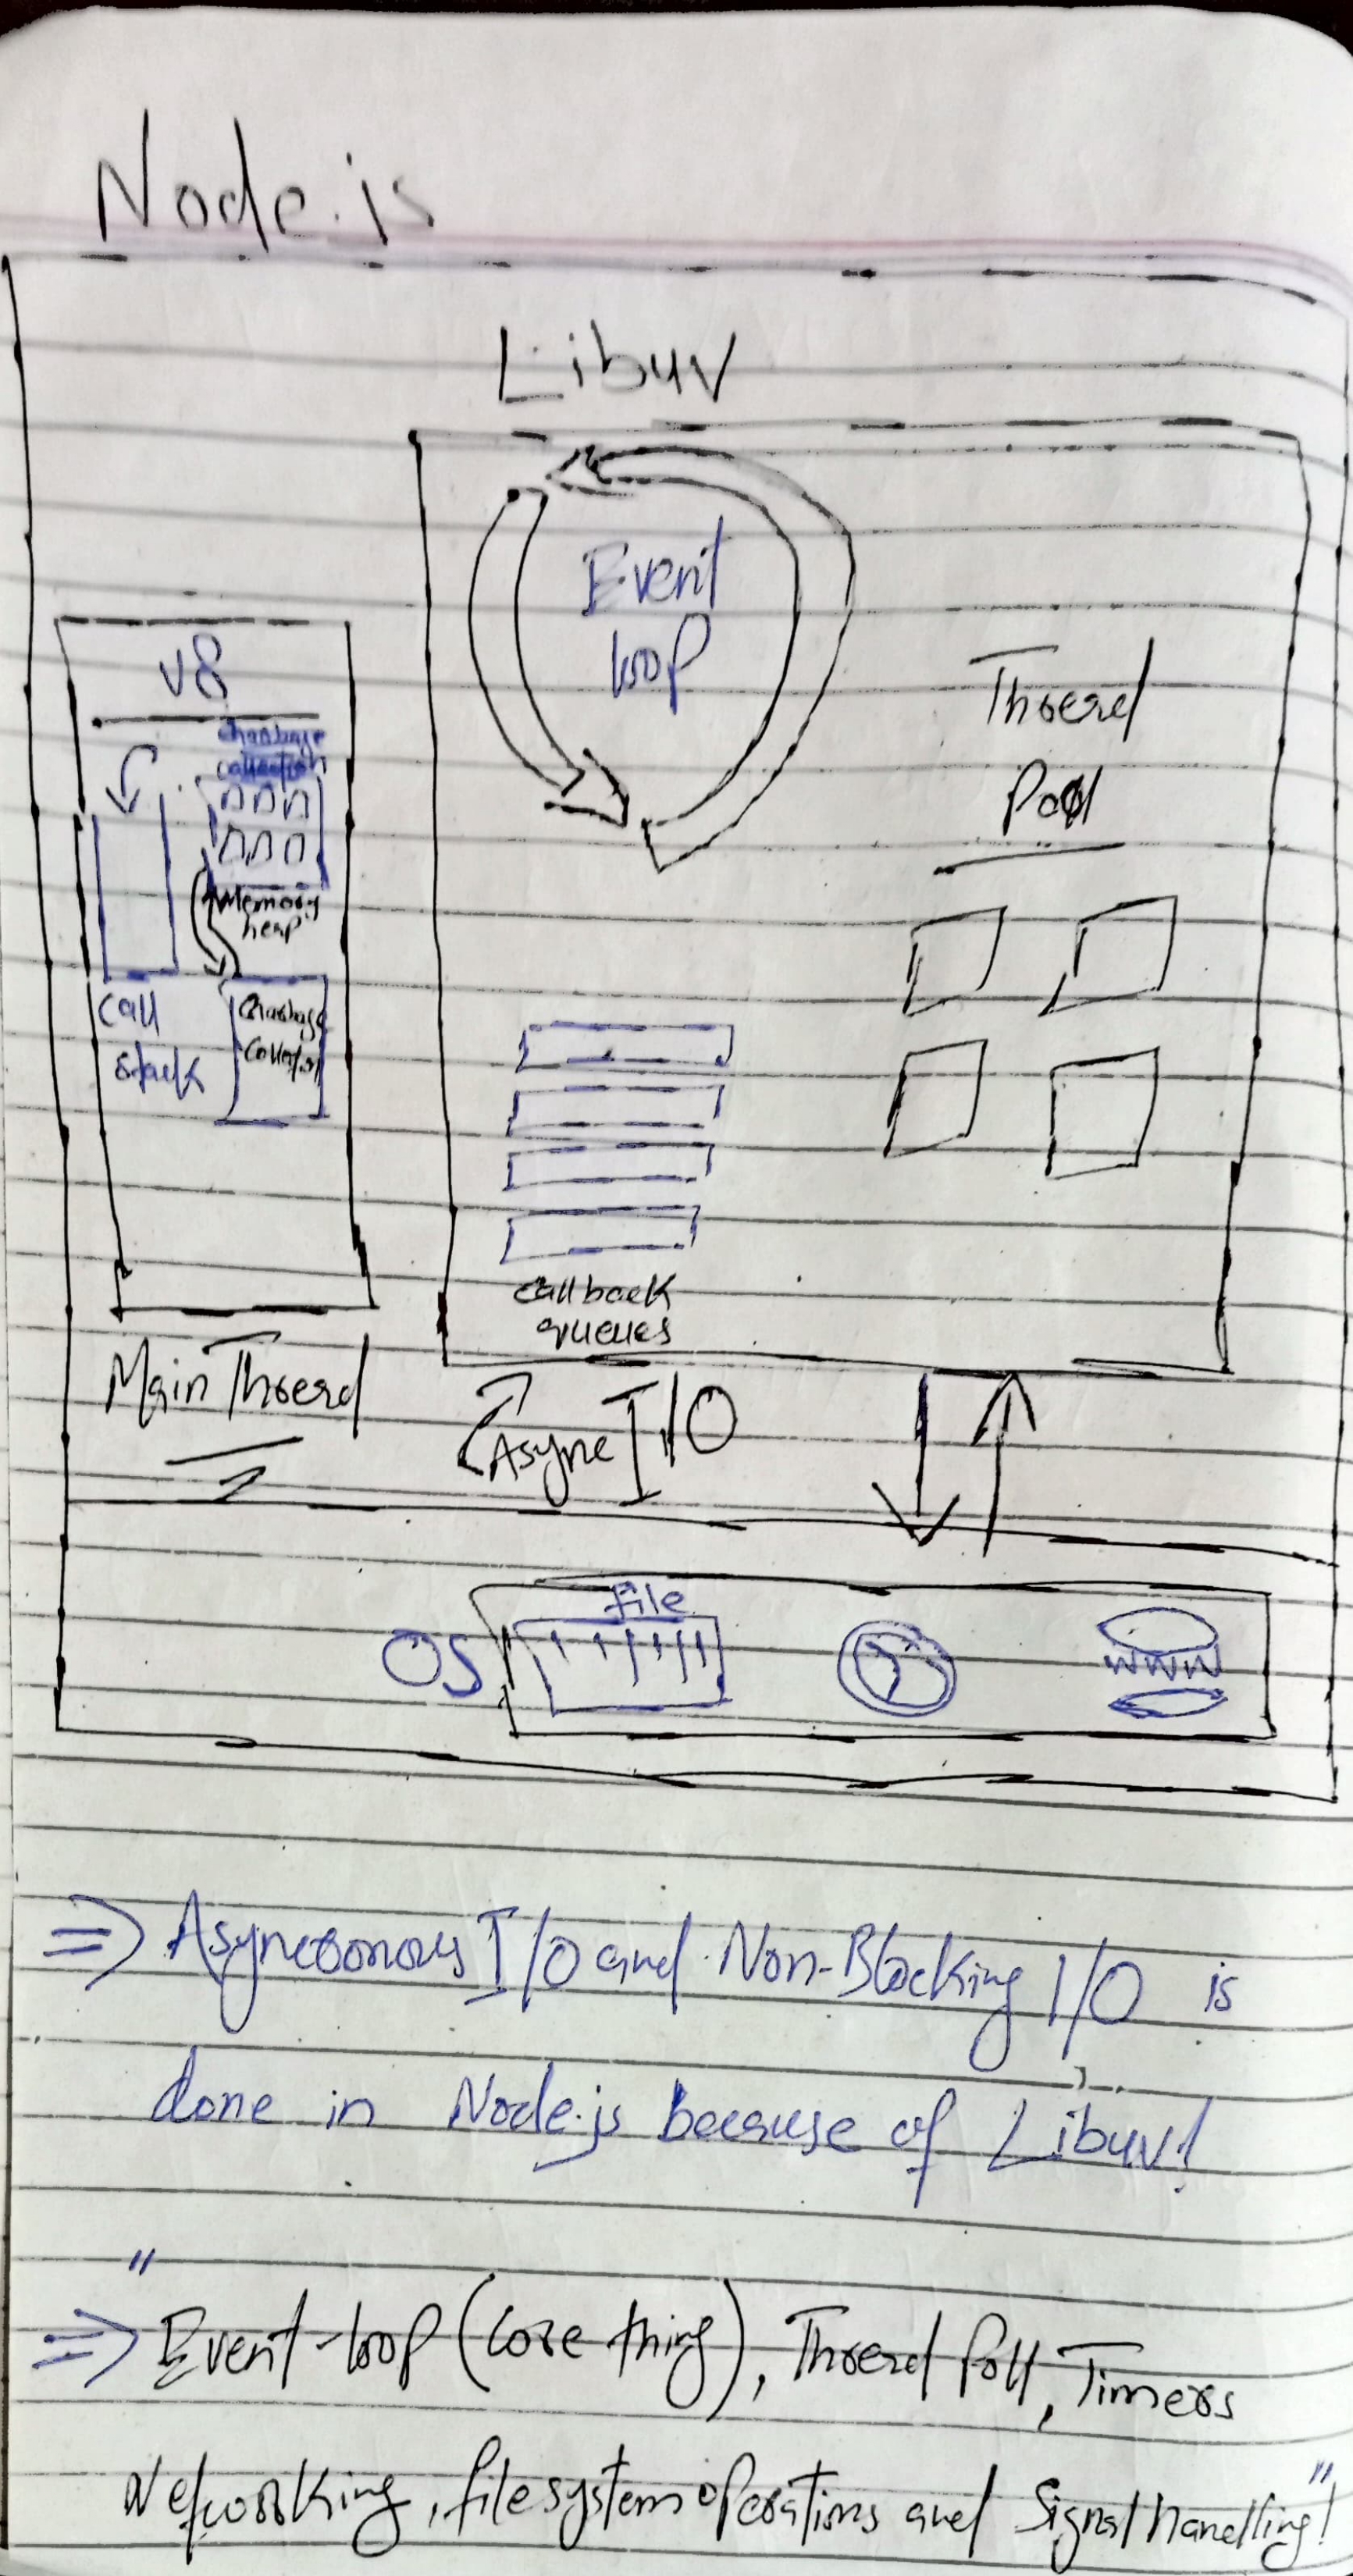 Node.js
Libuv
Event
loop
V8
Gharbage
collection
Memory
heap
Call
stack
Gharbage
Collector
Thread
Pool
callback
queues
Main Thread
Async I/O
OS
File
WWW
=> Asyncronous I/O and Non-Blocking I/O is
done in Node.js because of Libuv!
"
=> Event-loop (Core thing), Thread Poll, Timers
Networking, file system operations and Signal handling!"